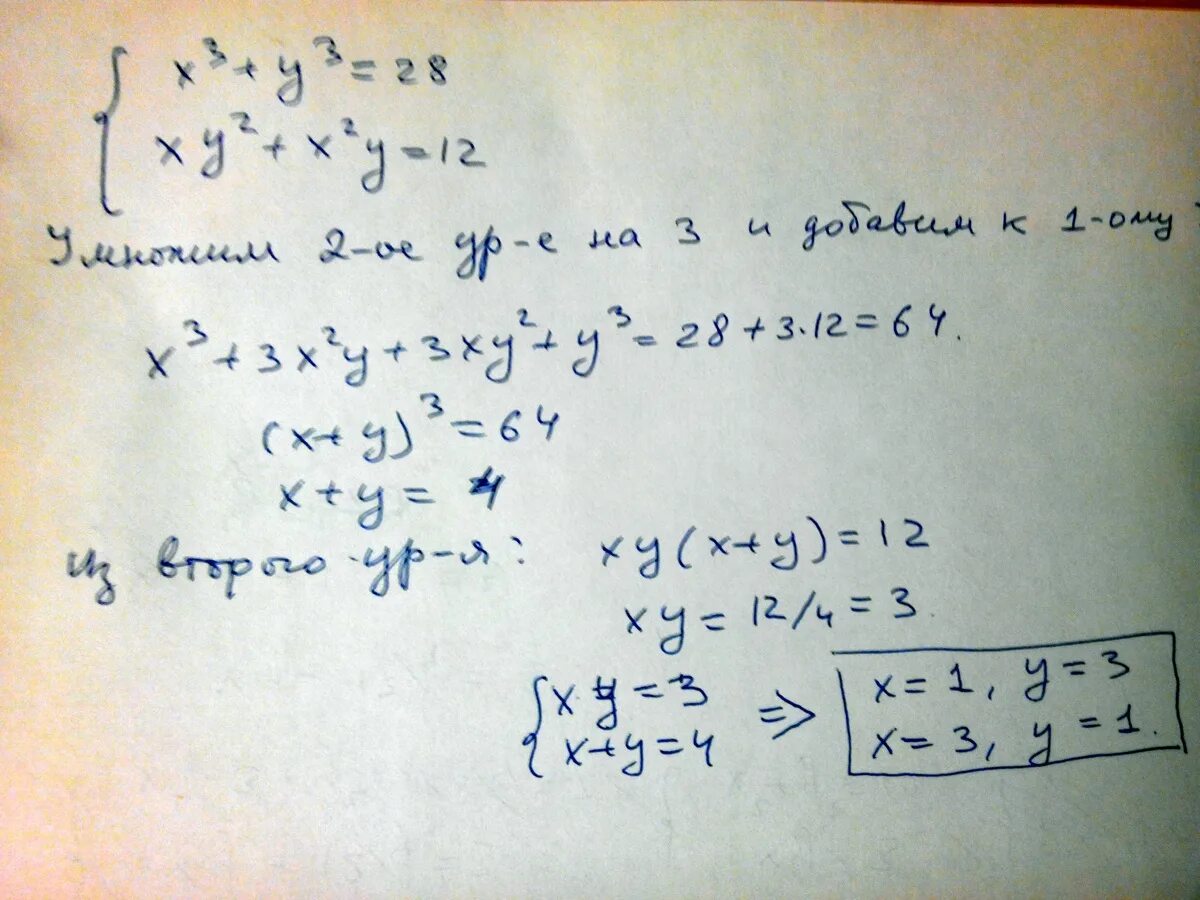 x³ + y³ = 28
xy² + x²y = 12
Умножим 2-ое ур-е на 3 и добавим к 1-ому
x³ + 3x²y + 3xy² + y³ = 28 + 3·12 = 64.
(x+y)³ = 64
x + y = 4
из второго ур-я: xy(x+y) = 12
xy = 12/4 = 3.
xy = 3 => x = 1, y = 3
x+y = 4 x = 3, y = 1.